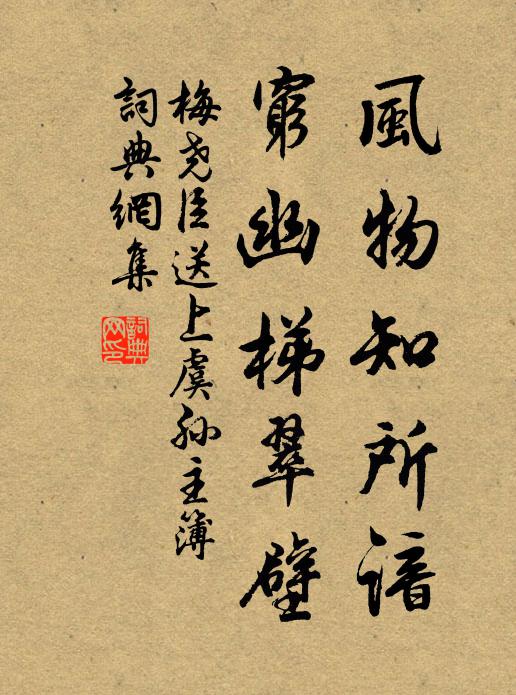 風物知所諳
窮幽梯翠壁
梅尧臣送上虞孙主簿
詞典網集
詞典网印